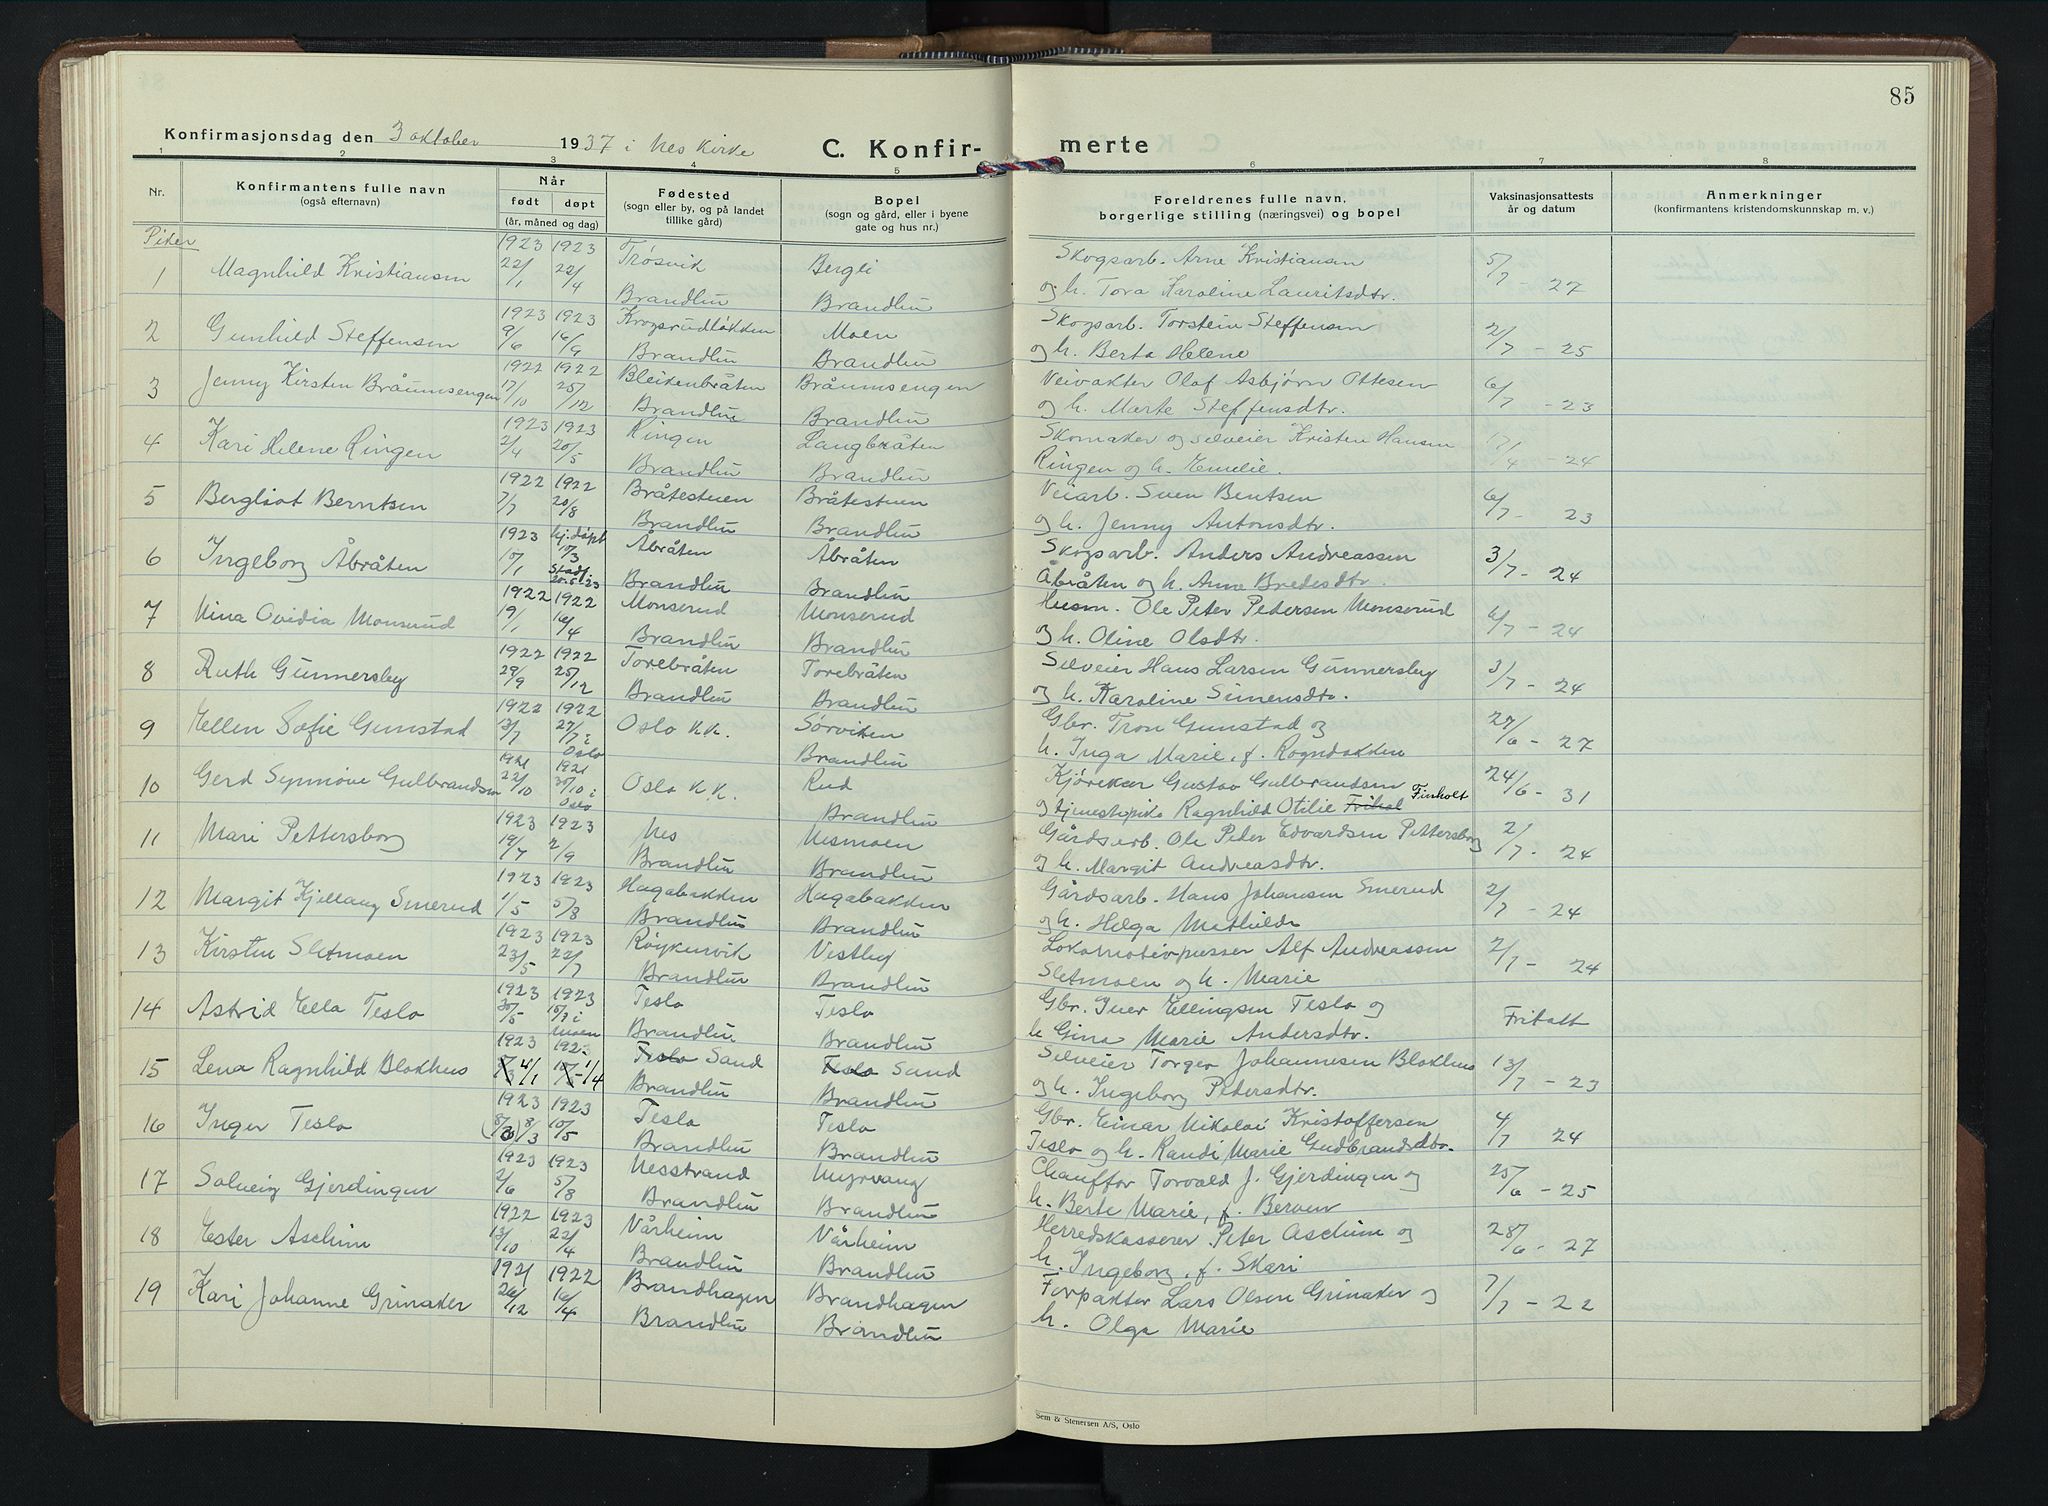 85
Konfirmasjonsdag den 3 oktober 1937 i Nes Kirke C. Konfir- merte
1 2 3 4 5 6 7 8
Nr. Konfirmantens fulle navn (også efternavn) Når født døpt (år, måned og dag) Fødested (sogn eller by, og på landet tillike gård) Bopel (sogn og gård, eller i byene gate og hus nr.) Foreldrenes fulle navn, borgerlige stilling (næringsvei) og bopel Vaksinasjonsattests år og datum Anmerkninger (konfirmantens kristendomskunnskap m. v.)
Piker
1 Magnhild Kristiansen 1923 22/1 1923 22/4 Trøsvik Brandbu Bergli Brandbu Skogsarb. Arne Kristiansen 5/7 - 27
og h. Tora Karoline Lauritsdtr.
2 Gunhild Steffensen 1923 9/6 1923 16/9 Krogsrudløkken Brandbu Moen Brandbu Skogsarb. Torstein Steffensen 2/7 - 25
og h. Berta Helene
3 Jenny Kirsten Bråumsengen 1922 17/10 1922 25/12 Bleikenbråten Brandbu Bråumsengen Brandbu Veivakter Olaf Asbjørn Ottesen 6/7 - 23
og h. Marte Steffensdtr.
4 Kari Helene Ringen 1923 2/4 1923 20/5 Ringen Brandbu Langbråten Brandbu Skomaker og selveier Kristen Hansen - 24
Ringen og h. Emelie.
5 Bergliot Berntsen 1922 7/7 1922 20/8 Bråtestuen Brandbu Bråtestuen Brandbu Veiarb. Sven Bentsen 6/7 - 23
og h. Jenny Antonsdtr.
6 Ingeborg Åbråten 1923 15/1 hj.døpt 15/3 Stadf. 20-5-23 Åbråten Brandbu Åbråten Brandbu Skogsarb. Anders Andreassen 3/7 - 24
Åbråten og h. Anne Bredesdtr.
7 Nina Ovidia Monserud 1922 19/1 1922 16/4 Monserud Brandbu Monserud Brandbu Husm. Ole Peter Pedersen Monserud 6/7 - 24
og h. Oline Olsdtr.
8 Ruth Gunnersby 1922 29/9 1922 25/12 Torebråten Brandbu Torebråten Brandbu Selveier Hans Larsen Gunnersby 3/7 - 24
og h. Karoline Simensdtr.
9 Ellen Sofie Gunstad 1922 13/7 1922 27/7 i Oslo Oslo K.K. Sørviken Brandbu Gbr. Tron Gunstad og 27/6 - 27
h. Inga Marie, f. Rogndokken
10 Gerd Synnøve Gulbrandsen 1921 22/10 1921 30/10 i Oslo Oslo K.K. Rud Brandbu Kjørekar Gustav Gulbrandsen 24/6 - 31
og tjenestepike Ragnhild Otilie Finholt
11 Mari Pettersborg 1923 19/7 1923 2/9 Nes Brandbu Nesmoen Brandbu Gårdsarb. Ole Peder Edvardsen Pettersborg 2/7 - 24
og h. Margit Andreasdtr.
12 Margit Kjellaug Smerud 1923 1/5 1923 5/8 Hagabakken Brandbu Hagabakken Brandbu Gårdsarb. Hans Johansen Smerud 2/7 - 24
og h. Helga Mathilde
13 Kirsten Sletmoen 1923 23/5 1923 22/7 Røykenvik Brandbu Vestby Brandbu Lokomotivpusser Alf Andreassen 2/7 - 24
Sletmoen og h. Marie
14 Astrid Ella Teslo 1923 30/5 1923 15/7 i Moen Teslo Brandbu Teslo Brandbu Gbr. Iver Ellingsen Teslo og Fritatt
h Gina Marie Andersdtr.
15 Lena Ragnhild Blokhus 1923 4/1 1/4 Teslo Sand Brandbu Teslo Sand Brandbu Selveier Torger Johannesen Blokhus 13/7 - 23
og h. Ingeborg Pedersdtr.
16 Inger Teslo 1923 8/3 1923 10/5 Teslo Brandbu Teslo Brandbu Gbr. Einar Nikolai Kristoffersen 4/7 24
Teslo og h. Randi Marie Gudbrandsdtr.
17 Solveig Gjerdingen 1923 2/6 1923 5/8 Nesstrand Brandbu Myrvang Brandbu Chauffør Torvald J. Gjerdingen og 25/6 - 25
h. Berte Marie, f. Berven
18 Ester Aschim 1922 13/10 1923 22/4 Vårheim Brandbu Vårheim Brandbu Herredskasserer Peter Aschim og 28/6 - 27
h. Ingeborg, f. Skari
19 Kari Johanne Grinaker 1921 26/12 1922 16/4 Brandhagen Brandbu Brandhagen Brandbu Forpakter Lars Olsen Grinaker og 7/7 - 22
h. Olga Marie
Sem & Stenersen A/S, Oslo